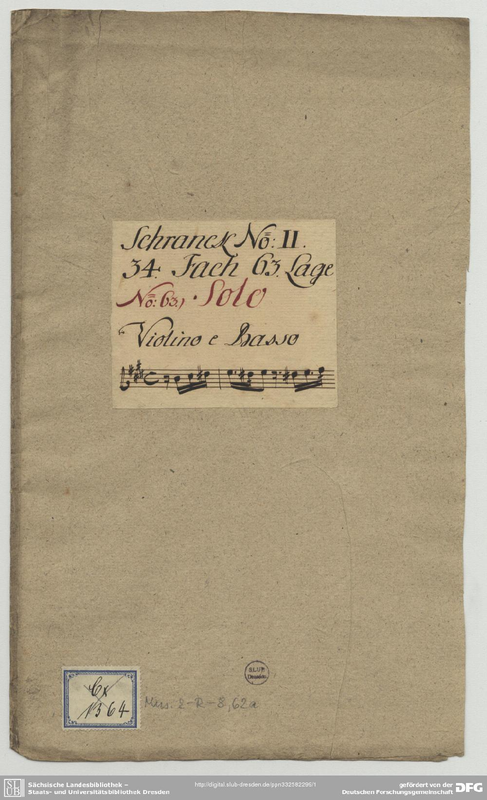 Schranck No: II.
34. Fach 63. Lage
No: 63, Solo
Violino e Basso
SLUB
Dresden
Cx
1364
Mus. 2-R-8,62a
SLUB
Sächsische Landesbibliothek –
Staats- und Universitätsbibliothek Dresden
http://digital.slub-dresden.de/ppn332582295/1
gefördert von der
Deutschen Forschungsgemeinschaft
DFG